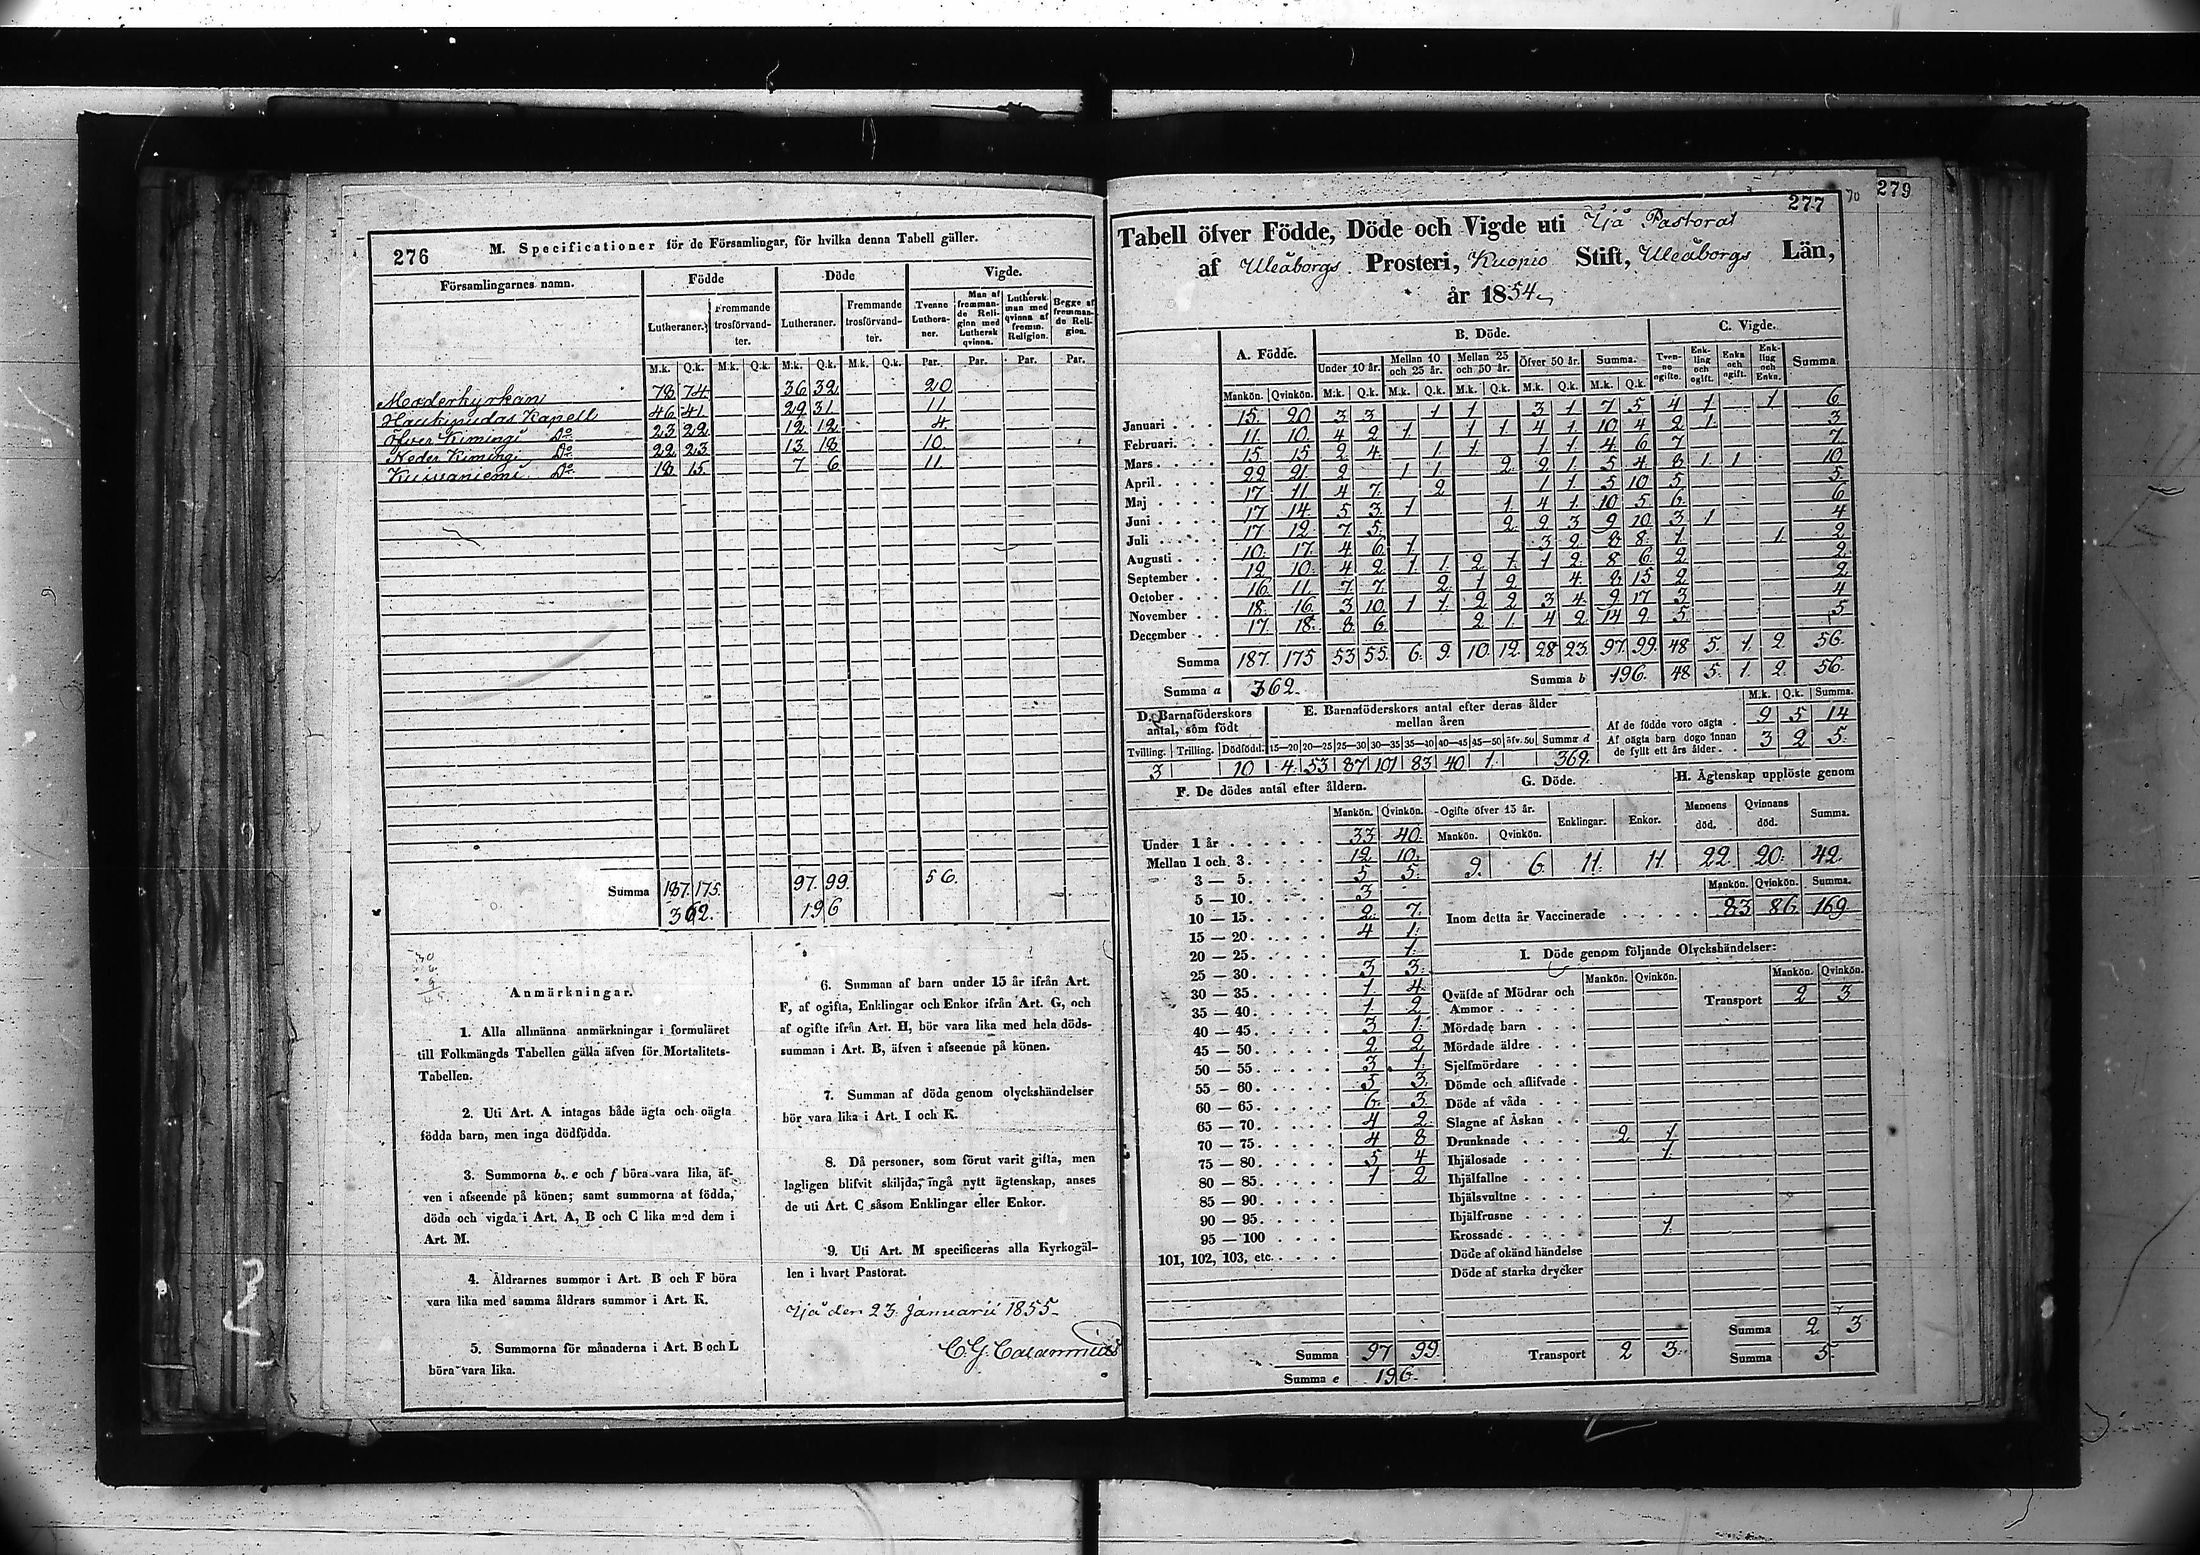 276
M. Specificationer för de Församlingar, för hvilka denna Tabell gäller.
Församlingarnes namn. Födde Döde Vigde.
Lutheraner. Fremmande trosförvandter. Lutheraner. Fremmande trosförvandter. Tvenne Lutheraner. Man af fremmande Religion med Luthersk qvinna. Luthersk man med qvinna af fremm. Religion. Begge af fremmande Religion.
M.k. Q.k. M.k. Q.k. M.k. Q.k. M.k. Q.k. Par. Par. Par. Par.
Moderkyrkan 78 74 36 32 20
Haukipudas Kapell 46 41 29 31 11
Öfver Kimingi Do 23 22 12 12 4
Neder Kimingi Do 22 23 13 18 10
Kuivaniemi Do 18 15 7 6 11
Summa 187. 175. 97. 99. 56.
362. 196
Anmärkningar.
1. Alla allmänna anmärkningar i formuläret
till Folkmängds Tabellen gälla äfven för Mortalitets-
Tabellen.
2. Uti Art. A intagas både ägta och oägta
födda barn, men inga dödfödda.
3. Summorna b, e och f böra vara lika, äf-
ven i afseende på könen; samt summorna af födda,
döda och vigda i Art. A, B och C lika med dem i
Art. M.
4. Åldrarnes summor i Art. B och F böra
vara lika med samma åldrars summor i Art. K.
5. Summorna för månaderna i Art. B och L
böra vara lika.
6. Summan af barn under 15 år ifrån Art.
F, af ogifta, Enklingar och Enkor ifrån Art. G, och
af ogifte ifrån Art. H, bör vara lika med hela döds-
summan i Art. B, äfven i afseende på könen.
7. Summan af döda genom olyckshändelser
bör vara lika i Art. I och K.
8. Då personer, som förut varit gifta, men
lagligen blifvit skiljda, ingå nytt ägtenskap, anses
de uti Art. C såsom Enklingar eller Enkor.
9. Uti Art. M specificeras alla Kyrkogäl-
len i hvart Pastorat.
Ijå den 23 Januarii 1855
C. G. Calamnius
277
70
279
Tabell öfver Födde, Döde och Vigde uti Ijå Pastorat
af Uleåborgs Prosteri, Kuopio Stift, Uleåborgs Län,
år 1854
A. Födde. B. Döde. C. Vigde.
Under 10 år. Mellan 10 och 25 år. Mellan 25 och 50 år. Öfver 50 år. Summa. Tvenne ogifte. Enkling och ogift. Enka och ogift. Enkling och Enka. Summa.
Mankön. Qvinkön. M.k. Q.k. M.k. Q.k. M.k. Q.k. M.k. Q.k. M.k. Q.k.
Januari 15. 20 3 3 1 1 3 1 7 5 4 1 1 6
Februari. 11. 10. 4 2 1 1 1 4 1 10 4 2 1 3
Mars 15 15 2 4 1 1 1 1 4 6 7 7
April 22 21 2 1 1 2 2 1 5 4 8 1 1 10
Maj 17 11 4 7 2 1 1 5 10 5 5
Juni 17 14. 5 3 1 1 4 1 10 5 6 6
Juli 17 12 7 5 2 2 3 9 10 3 1 4
Augusti 10. 17 4 6 1 3 2 8 8 1 1 2
September 12 10. 4 2 1 1 2 1 1 2 8 6 2 2
October 16 11. 7 7 2 1 2 4 8 15 2 2
November 18. 16 3 10 1 1 2 2 3 4 9 17 3 4
December 17. 18. 8 6 2 1 4 2 14 9 5 5
Summa 187. 175 53 55. 6. 9. 10. 12. 28 23. 97. 99. 48 5. 1. 2. 56.
Summa a 362. Summa b 196. 48 5. 1. 2. 56.
D. Barnaföderskors antal, som födt
Tvilling. Trilling. Dödfödd.
3 10
E. Barnaföderskors antal efter deras ålder mellan åren
15—20 20—25 25—30 30—35 35—40 40—45 45—50 öfv. 50 Summa d
4. 53 87 101 83 40 1. 369.
M.k. Q.k. Summa.
Af de födde voro oägta 9 5 14
Af oägta barn dogo innan de fyllt ett års ålder 3 2 5.
F. De dödes antal efter åldern.
Mankön. Qvinkön.
Under 1 år 33 40.
Mellan 1 och 3 12 10.
3 — 5 5 5.
5 — 10 3
10 — 15 2 7.
15 — 20 4 1.
20 — 25 1.
25 — 30 3 3.
30 — 35 1. 4.
35 — 40 1. 2
40 — 45 3 1.
45 — 50 2 2
50 — 55 3 1.
55 — 60 5 3.
60 — 65 6. 3.
65 — 70 4 2
70 — 75 4 8
75 — 80 5 4
80 — 85 1 2
85 — 90
90 — 95
95 — 100
101, 102, 103, etc.
Summa 97 99
Summa e 196.
G. Döde.
Ogifte öfver 15 år. Enklingar. Enkor.
Mankön. Qvinkön.
9. 6. 11. 11
H. Ägtenskap upplöste genom
Mannens död. Qvinnans död. Summa.
22. 20. 42.
Mankön. Qvinkön. Summa.
Inom detta år Vaccinerade 83 86 169
I. Döde genom följande Olyckshändelser:
Mankön. Qvinkön. Mankön. Qvinkön.
Qväfde af Mödrar och Ammor
Transport 2 3
Mördade barn
Mördade äldre
Sjelfmördare
Dömde och aflifvade
Döde af våda
Slagne af Åskan
Drunknade 2 1
Ihjälosade 1.
Ihjälfallne
Ihjälsvultne
Ihjälfrusne
Krossade 1.
Döde af okänd händelse
Döde af starka drycker
Transport 2 3.
Summa 2 3
Summa 5.